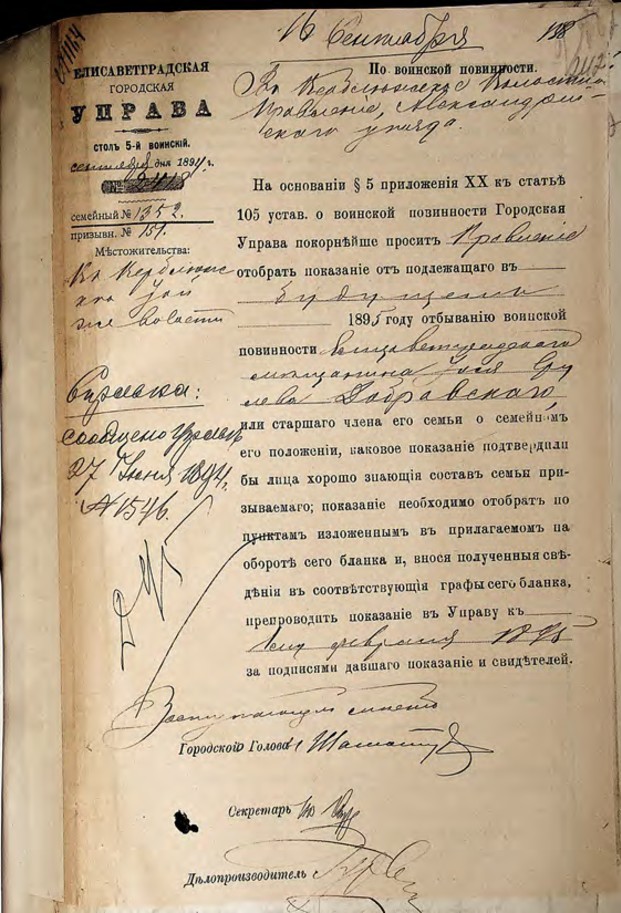 16 Сентября
ЕЛИСАВЕТГРАДСКАЯ
ГОРОДСКАЯ
УПРАВА
столъ 5-й воинскій.
сентября дня 1894 г.
№ 2418
семейный № 1352.
призывн. № 151.
Мѣстожительства:
волости
Справка:
сообщено
27 Июня 1894 г.
№ 1546.
По воинской повинности.
Въ Волостное
Правленіе, Александрій-
скаго уѣзда.
На основаніи § 5 приложенія XX къ статьѣ
105 устав. о воинской повинности Городская
Управа покорнѣйше проситъ Правленіе
отобрать показаніе отъ подлежащаго въ
будущемъ
1895 году отбыванію воинской
повинности Елисаветградскаго
мѣщанина
Добровскаго,
или старшаго члена его семьи о семейномъ
его положеніи, каковое показаніе подтвердили
бы лица хорошо знающія составъ семьи при-
зываемаго; показаніе необходимо отобрать по
пунктамъ изложеннымъ въ прилагаемомъ на
оборотѣ сего бланка и, внося полученныя свѣ-
дѣнія въ соотвѣтствующія графы сего бланка,
препроводить показаніе въ Управу къ
февраля 1895
за подписями давшаго показаніе и свидѣтелей.
Заступающій мѣсто
Городской Голова
Секретарь
Дѣлопроизводитель